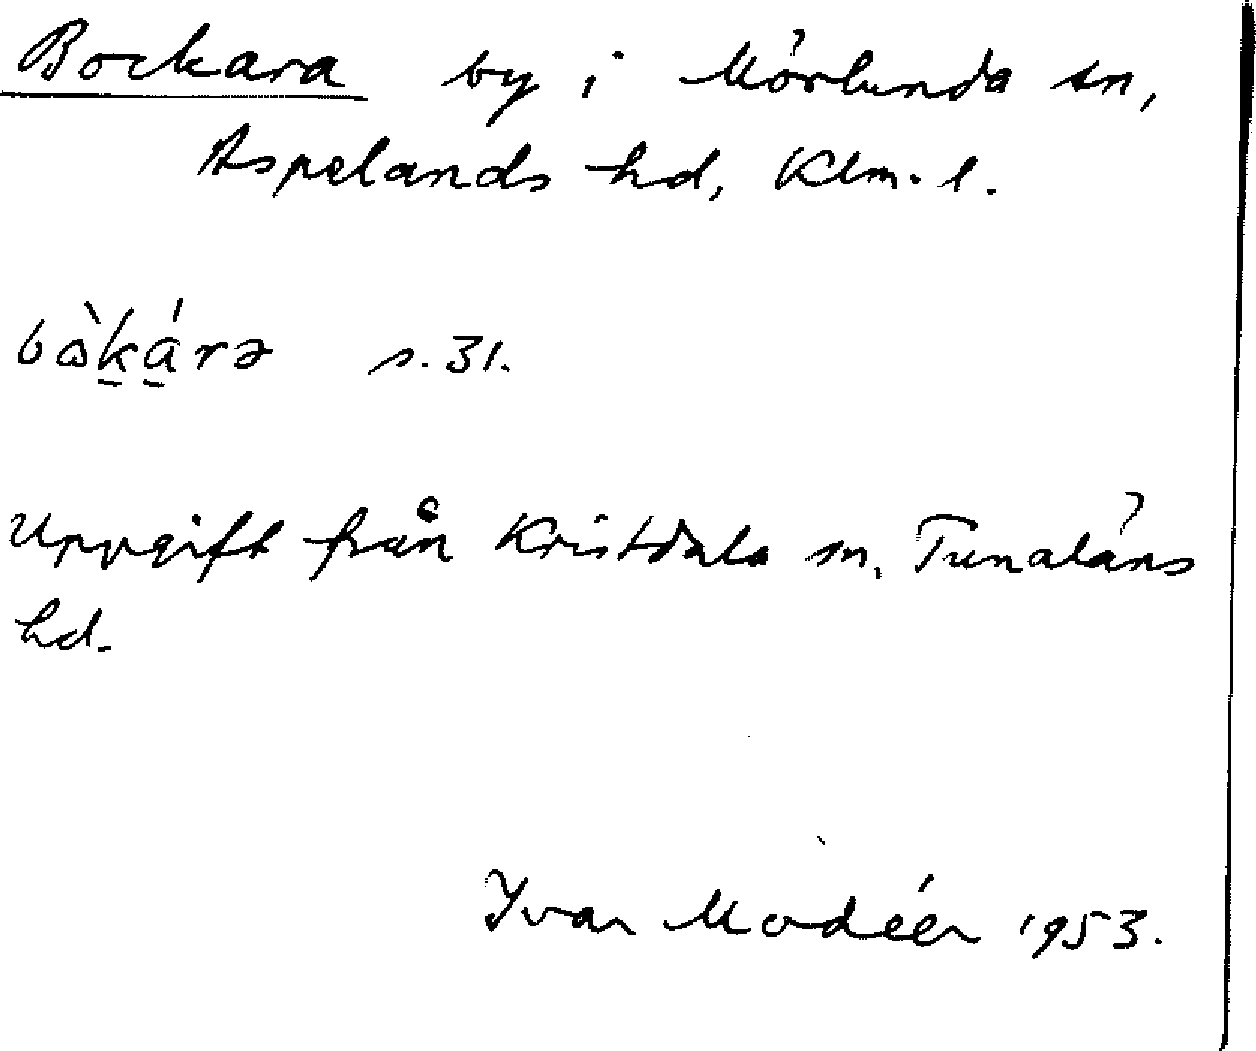 Bockara by i Mörlunda sn,
Aspelands hd, Klm. l.
bὼk̠á̠rə s. 31.
Uppgift från Kristdala sn, Tunaläns
hd.
Ivar Modéer 1953.